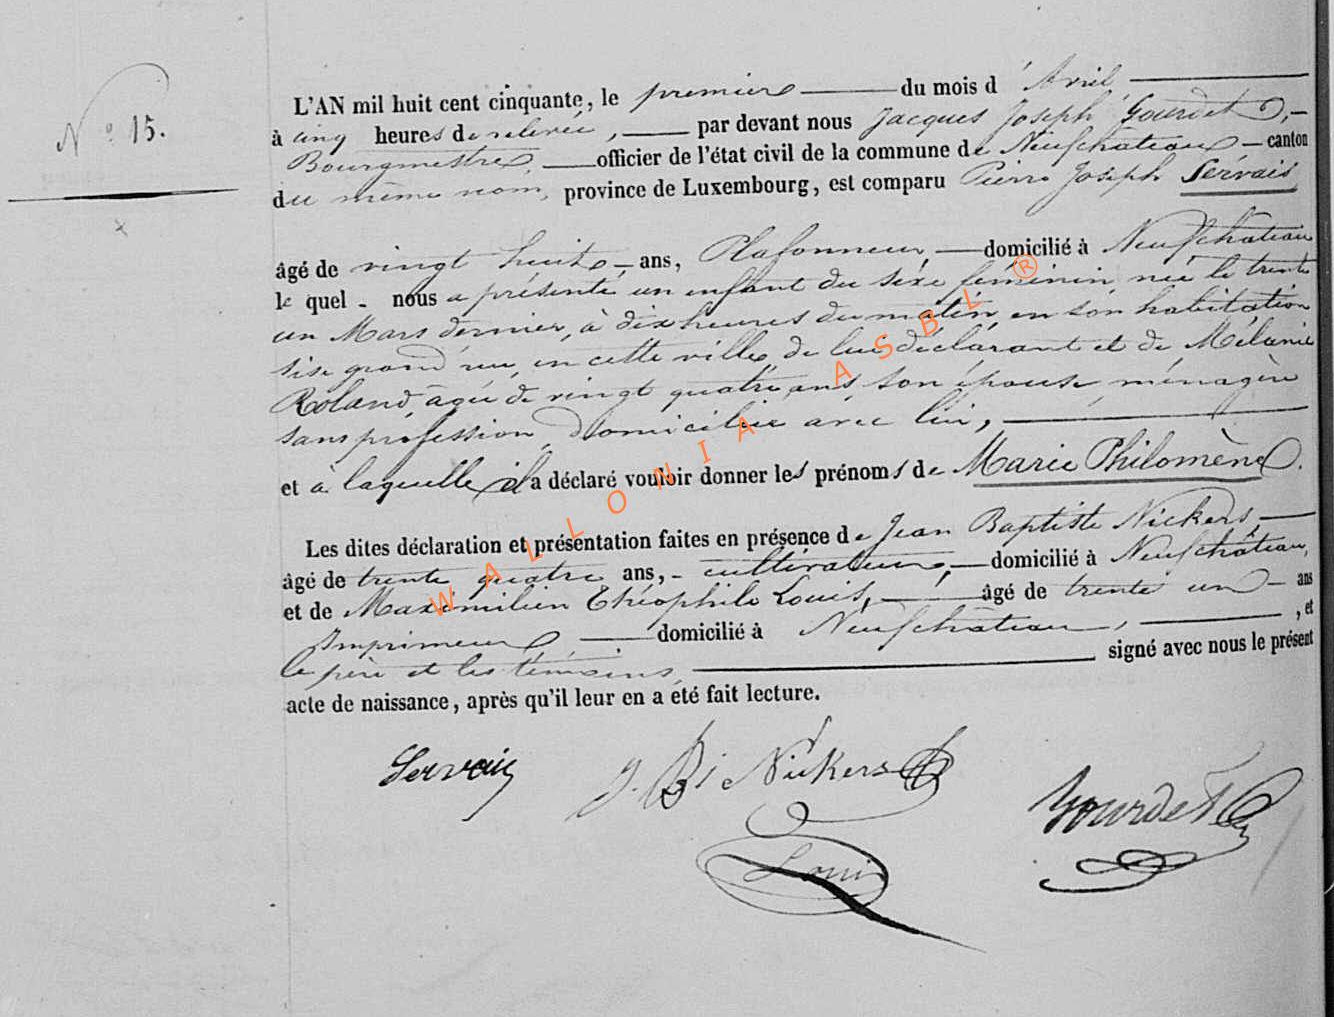 N° 15.
L'AN mil huit cent cinquante, le premier du mois d'Avril,
à cinq heures de relevée, par devant nous Jacques Joseph Gourdet,
Bourgmestre officier de l'état civil de la commune de Neufchâteau canton
du même nom, province de Luxembourg, est comparu Pierre Joseph Servais
âgé de vingt huit ans, Plafonneur, domicilié à Neufchâteau
lequel nous a présenté un enfant du sexe féminin née le trente
un Mars dernier, à dix heures du matin, en son habitation
sise grand'rue, en cette ville, de lui déclarant et de Mélanie
Roland, âgée de vingt quatre ans son épouse ménagère
sans profession, domiciliée avec lui,
et à laquelle il a déclaré vouloir donner les prénoms de Marie Philomène.
Les dites déclaration et présentation faites en présence de Jean Baptiste Nickers,
âgé de trente quatre ans, cultivateur, domicilié à Neufchâteau,
et de Maximilien Théophile Louis, âgé de trente un ans
Imprimeur domicilié à Neufchâteau, , et
le père et les témoins, signé avec nous le présent
acte de naissance, après qu'il leur en a été fait lecture.
Servais J. Bte Nickers
Gourdet
Louis
WALLONIA ASBL ®